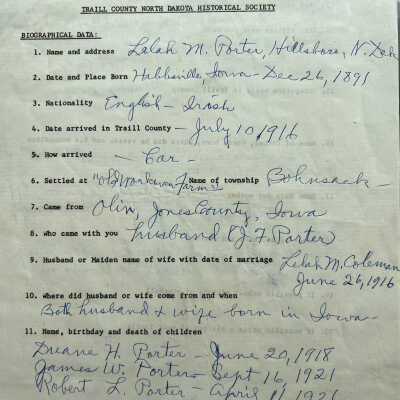 TRAILL COUNTY NORTH DAKOTA HISTORICAL SOCIETY
BIOGRAPHICAL DATA:
1. Name and address Lelah M. Porter, Hillsboro, N. Dak
2. Date and Place Born Hebbsville, Iowa - Dec 26, 1891
3. Nationality English - Irish
4. Date arrived in Traill County - July 10, 1916
5. How arrived - Car -
6. Settled at "Old Workman Farm" Name of township Bohnsack -
7. Came from Olin, Jones County, Iowa
8. Who came with you husband (J. F. Porter
9. Husband or Maiden name of wife with date of marriage Lelah M. Coleman
June 26, 1916
10. Where did husband or wife come from and when
Both husband & wife born in Iowa -
11. Name, birthday and death of children
Duane H. Porter - June 20, 1918
James W. Porter - Sept 16, 1921
Robert L. Porter - April